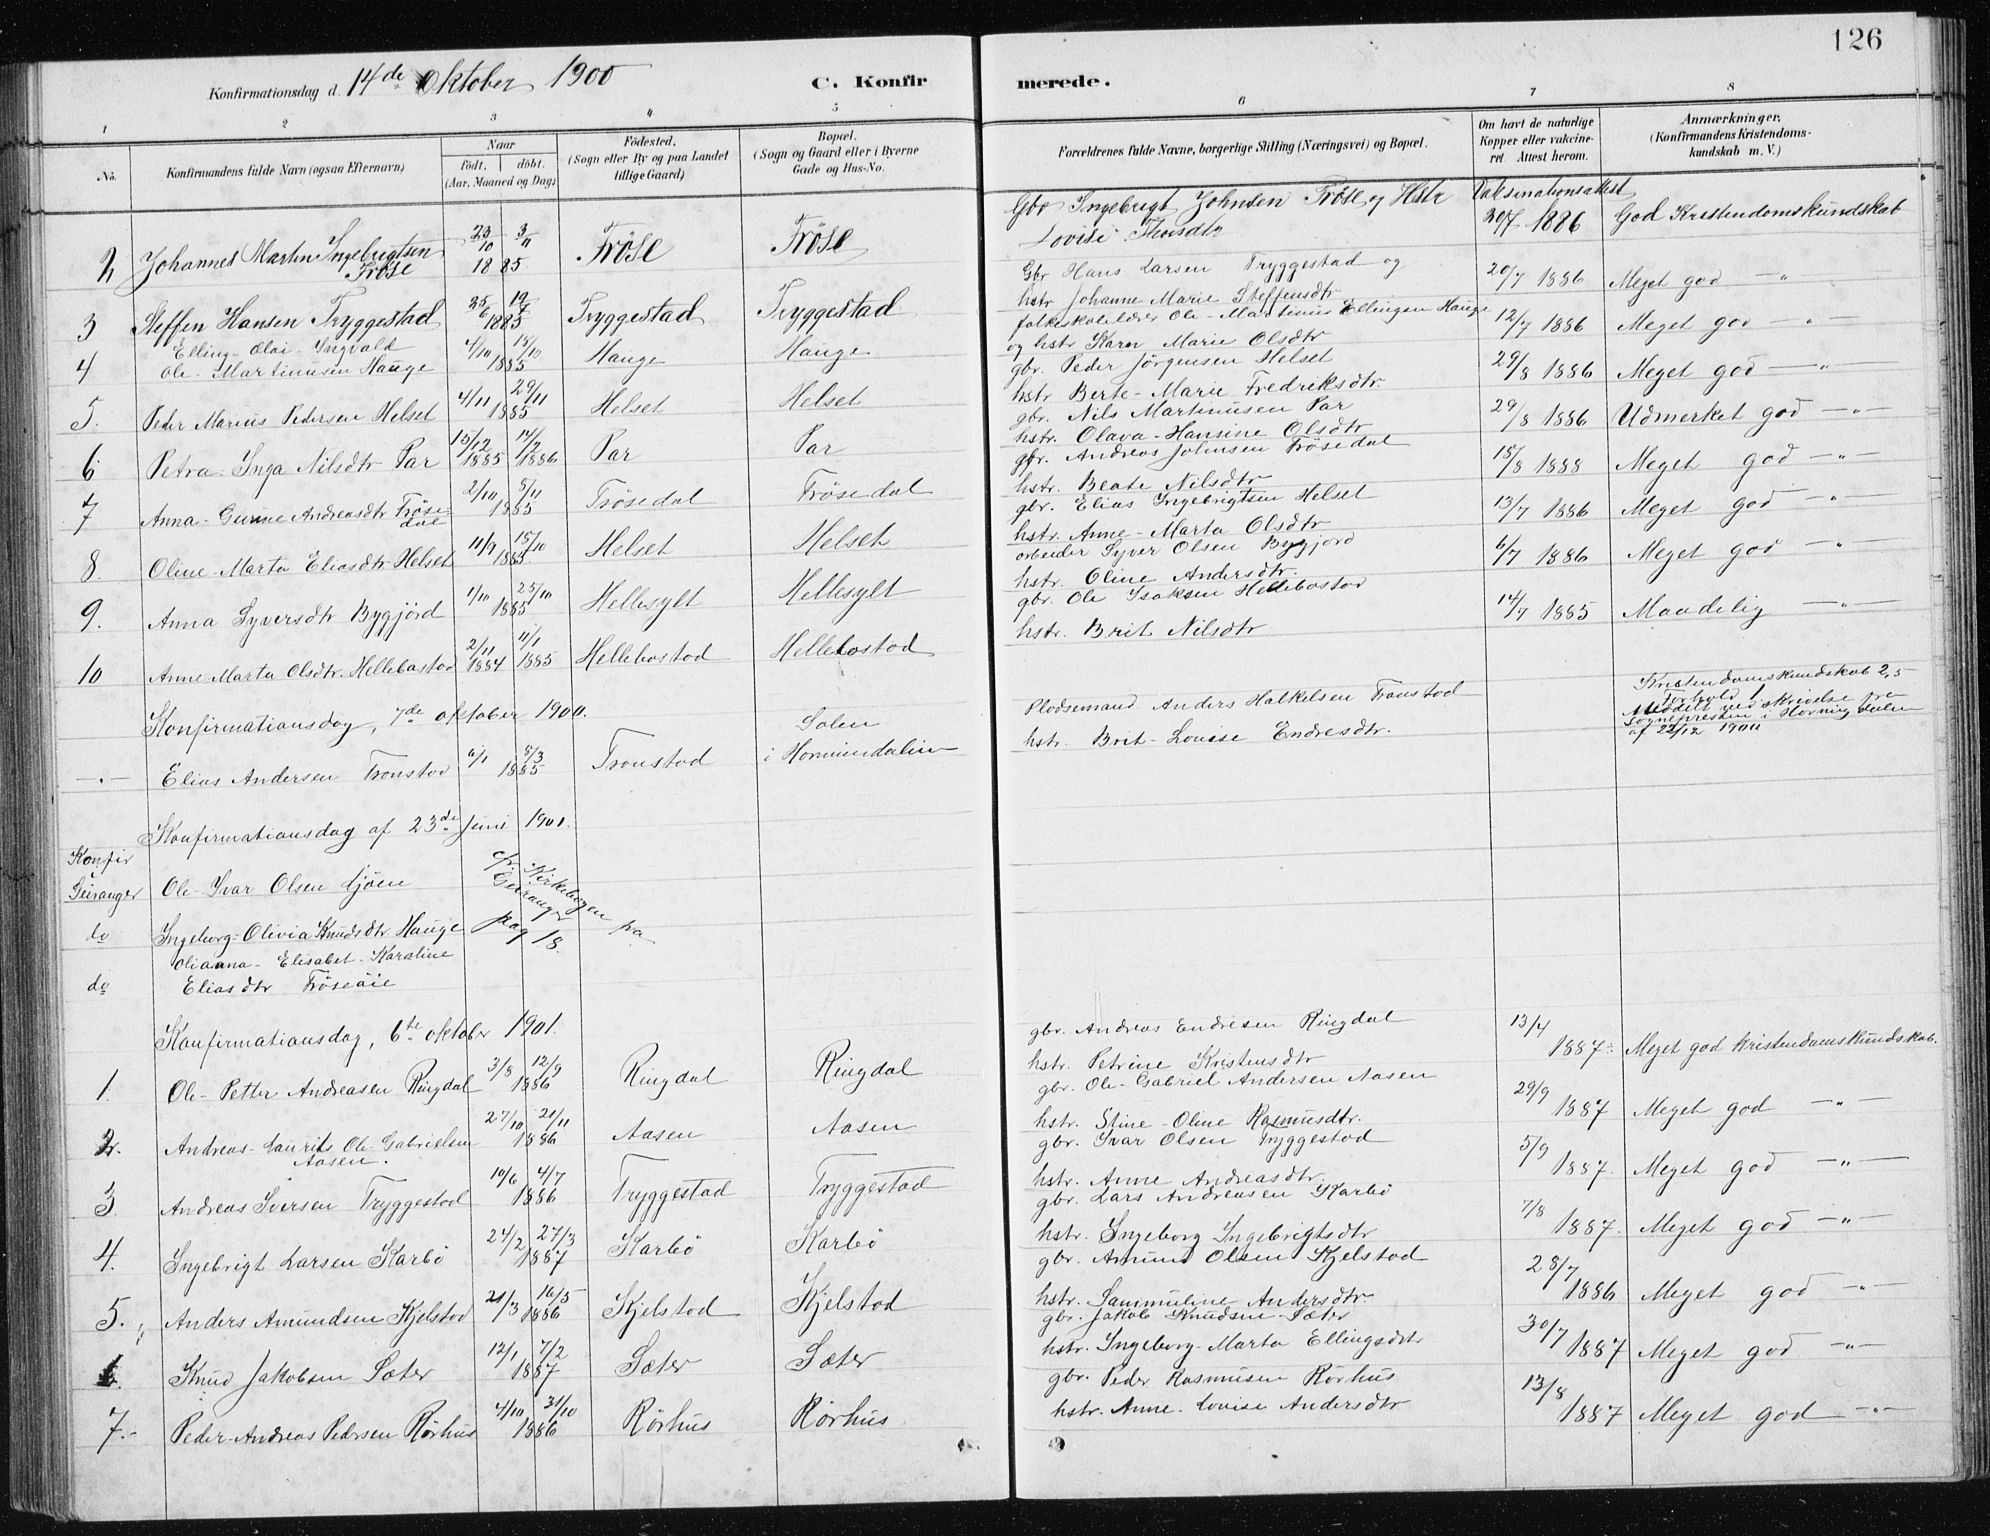 126
Konfirmationsdag d. 14de Oktober 1900 C. Konfir merede.
1 2 3 4 5 6 7 8
No. Konfirmandens fulde Navn (ogsaa Efternavn) Naar født. døbt. (Aar, Maaned og Dag) Fødested. (Sogn eller By og paa Landet tillige Gaard) Bopæl. (Sogn og Gaard eller i Byerne Gade og Hus-No. Forældrenes fulde Navne, borgerlige Stilling (Næringsvei) og Bopæl. Om havt de naturlige Kopper eller vakcineret. Attest herom. Anmærkninger. (Konfirmandens Kristendomskundskab m. V.)
Gbr Ingebrigt Johnsen Frøse og Hstr Vaksinationsattest
2 Johannes Martin Ingebrigtsen Frøse 23/10 3/11 1885 Frøse Frøse Lovise 30/7 1886 God Kristendomskundskab
Gbr Hans Larsen Tryggestad og
3 Steffen Hansen Tryggestad 25/6 19/7 1885 Tryggestad Tryggestad hstr Johanne Marie Steffensdtr 20/7 1886 Meget god —"
folkeskolelærer Ole-Martinius Ellingsen Hauge
4 Elling-Olai-Ingvald Ole-Martinusen Hauge 4/10 18/10 1885 Hauge Hauge og hstr Karen Marie Olsdtr 12/7 1886 Meget god —"—
gbr. Peder Jørgensen Helset
5. Peder Marius Pedersen Helset 4/11 29/11 1885 Helset Helset hstr Berte-Marie Fredriksdtr 29/8 1886 Meget god —"
gbr. Nils Martinusen Par
6. Petra-Inga Nilsdtr Par 15/12 1885 14/2 1886 Par Par hstr. Olava-Hansine Olsdtr 29/8 1886 Udmerket god —"—
gbr. Andreas Johnsen Frøsedal
7 Anna-Gurine Andreasdtr Frøsedal 2/10 5/11 1885 Frøsedal Frøsedal hstr. Beate Nilsdtr 15/8 1888 Meget god —"—
gbr. Elias Ingebrigtsen Helset
8. Oline-Marta Eliasdtr Helset 11/9 15/10 1885 Helset Helset hstr. Anne-Marta Olsdtr 13/7 1886 Meget god —"—
arbeider Syver Olsen Bygjord
9. Anna Syversdtr Bygjörd 1/10 25/10 1885 Hellesylt Hellesylt hstr. Oline Andersdtr. 6/7 1886 Meget god —"—
gbr. Ole Isaksen Hellebostad
10 Anne-Marta Olsdtr. Hellebostad 2/11 1884 11/1 1885 Hellebostad Hellebostad hstr. Brit Nilsdtr 14/7 1885 Maadelig —"—
Konfirmationsdag, 7de oktober 1900.
—"— Elias Andersen Tronstad 6/1 8/3 1885 Tronstad i Hornindalen Plodsemand Anders Halkelsen Tronstad
hstr. Brit-Lovise Endresdtr.
Kristendomskundskab 2,5
Forhold 1
Meddelt ved skrivelse fra
sognepresten i Horningdalen
af 22/12 1900
Konfirmationsdag af 23de Juni 1901.
Konfir Geiranger Ole-Ivar Olsen Gjøen
cfr. Kirkebogen fra Geiranger pag 18.
do Ingeborg-Olivia Knudsdtr Hauge
do Olianna-Elisabet-Karoline Eliasdtr Frøseøie
Konfirmationsdag, 6te oktober 1901.
gbr. Andreas Endresen Ringdal
1. Ole-Petter Andreasen Ringdal 3/8 12/9 1886 Ringdal Ringdal hstr. Petrine Kristensdtr 13/4 1887 Meget god Kristendomskundskab.
gbr. Ole-Gabriel Andersen Aasen
2. Andreas-Laurits Ole-Gabrielsen Aasen. 27/10 21/11 1886 Aasen Aasen hstr. Stine-Oline Rasmusdtr. 29/9 1887 Meget god —"—
gbr. Ivar Olsen Tryggestad
3. Andreas Iversen Tryggestad 10/6 4/7 1886 Tryggestad Tryggestad hstr. Anne Andreasdtr. 5/9 1887. Meget god —"—
gbr. Lars Andreasen Karbö
4. Ingebrigt Larsen Karbö 24/2 27/3 1887 Karbö Karbö hstr. Ingeborg Ingebrigtsdtr 7/8 1887. Meget god —"—
gbr. Amund Olsen Kjelstad
5. Anders Amundsen Kjelstad 21/3 16/5 1886 Kjelstad Kjelstad hstr. Sammuline Andersdtr. 28/7 1886 Meget god —"—
gbr. Jakob Knudsen Sæter
6. Knud Jakobsen Sæter 12/1 7/2 1887 Sæter Sæter hstr. Ingeborg-Marta Ellingsdtr 30/7 1887 Meget god —"—
gbr. Peder Rasmusen Rörhus
7. Peder-Andreas Pedersen Rörhus 4/10 31/10 1886 Rörhus Rörhus hstr. Anne-Lovise Andersdtr 13/8 1887 Meget god —"—